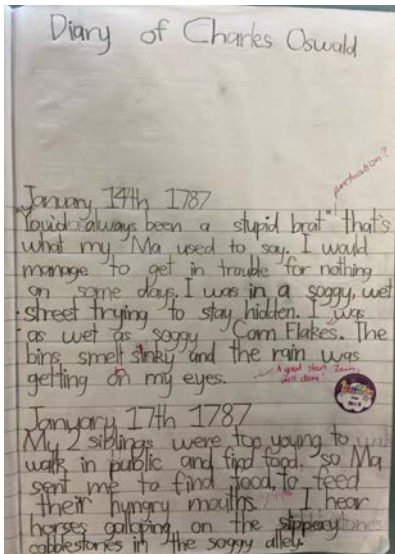 Diary of Charles Oswald
punctuation?
January 14th 1787
"You'd always been a stupid brat" that's
what my Ma used to say. I would
manage to get in trouble for nothing
on some days. I was in a soggy, wet
street trying to stay hidden. I was
as wet as soggy Corn Flakes. The
bins smelt stinky and the rain was
getting on my eyes.
A great start Zain,
well done!
January 17th 1787
My 2 siblings were too young to
walk in public and find food, so Ma
sent me to find food, to feed
their hungry mouths. I hear
horses galloping on the slippery
cobblestones in the soggy alley.